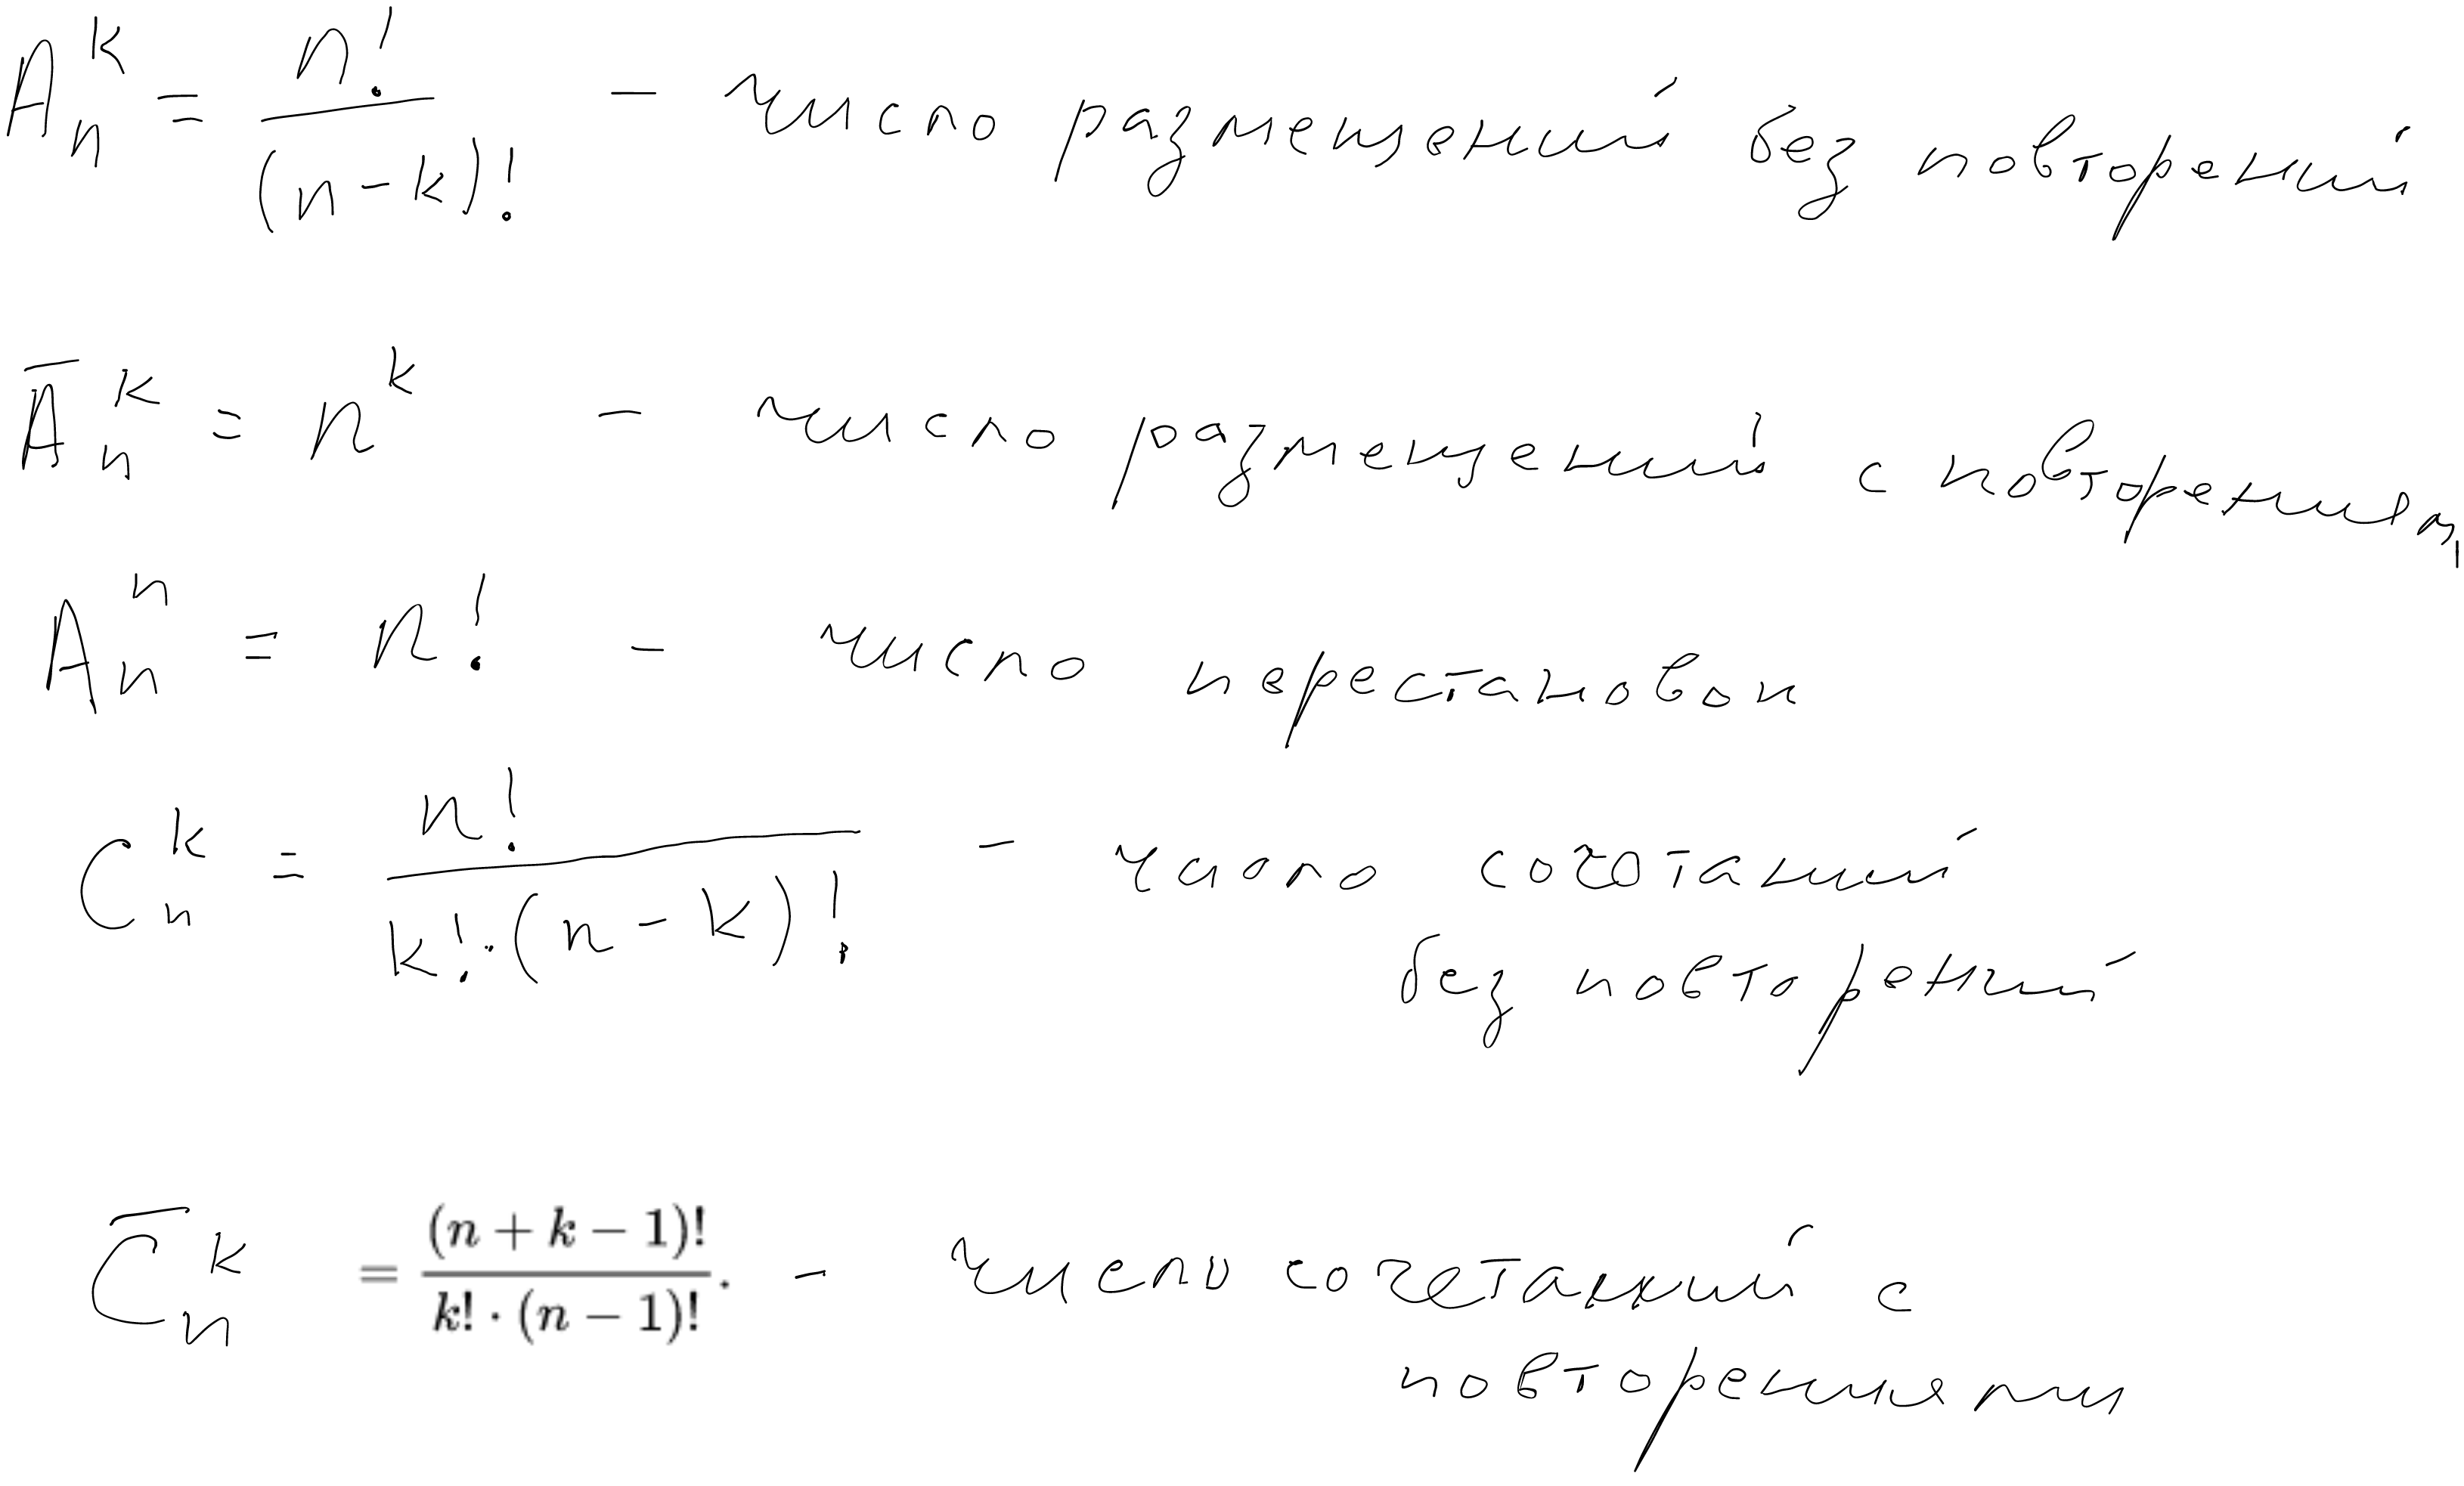 Aₙᵏ = n! / (n-k)! - число размещений без повторений
A̅ₙᵏ = nᵏ - число размещений с повторениям
Aₙⁿ = n! - число перестановок
Cₙᵏ = n! / k!·(n-k)! - число сочетаний
без повторений
C̅ₙᵏ = (n + k − 1)! / k! · (n − 1)!. - число сочетаний с
повторениями